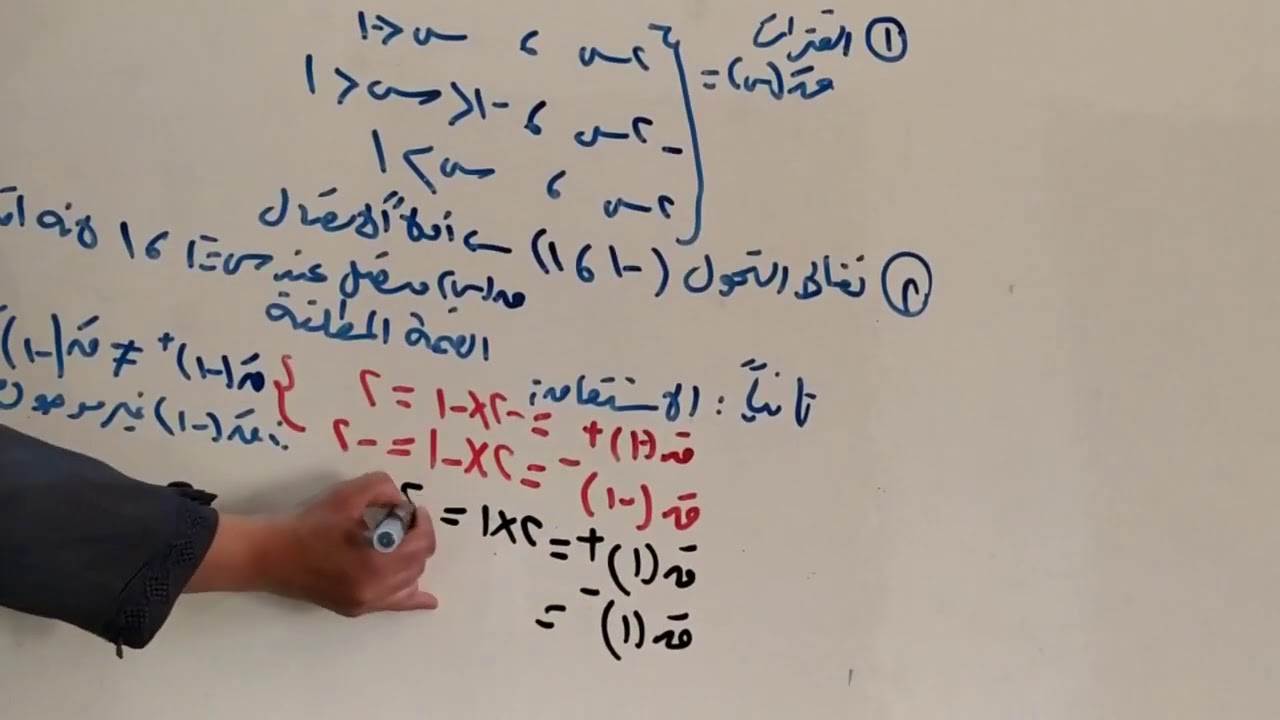 ① الفترات
قَ(س) =
٢س ، س < -١
-٢س ، -١ < س < ١
٢س ، س > ١
② نقاط التحول (-١ ، ١) ← أولاً الاتصال
ق(س) متصل عند س = -١ ، ١ لأنه
القيمة المطلقة
ثانياً : الاشتقاق :
قَ(-١)⁺ = -٢×-١ = ٢
قَ(-١)⁻ = ٢×-١ = -٢
قَ(-١)⁺ ≠ قَ(-١)
∴ قَ(-١) غير موجودة
قَ(١)⁺ = ٢×١ = ٢
قَ(١)⁻ =